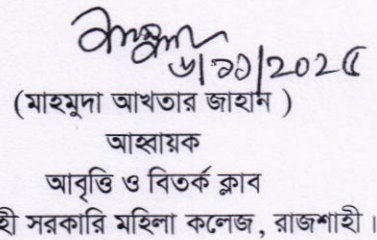 ৬/১১/২০২৫
(মাহমুদা আখতার জাহান )
আহ্বায়ক
আবৃত্তি ও বিতর্ক ক্লাব
হী সরকারি মহিলা কলেজ, রাজশাহী।